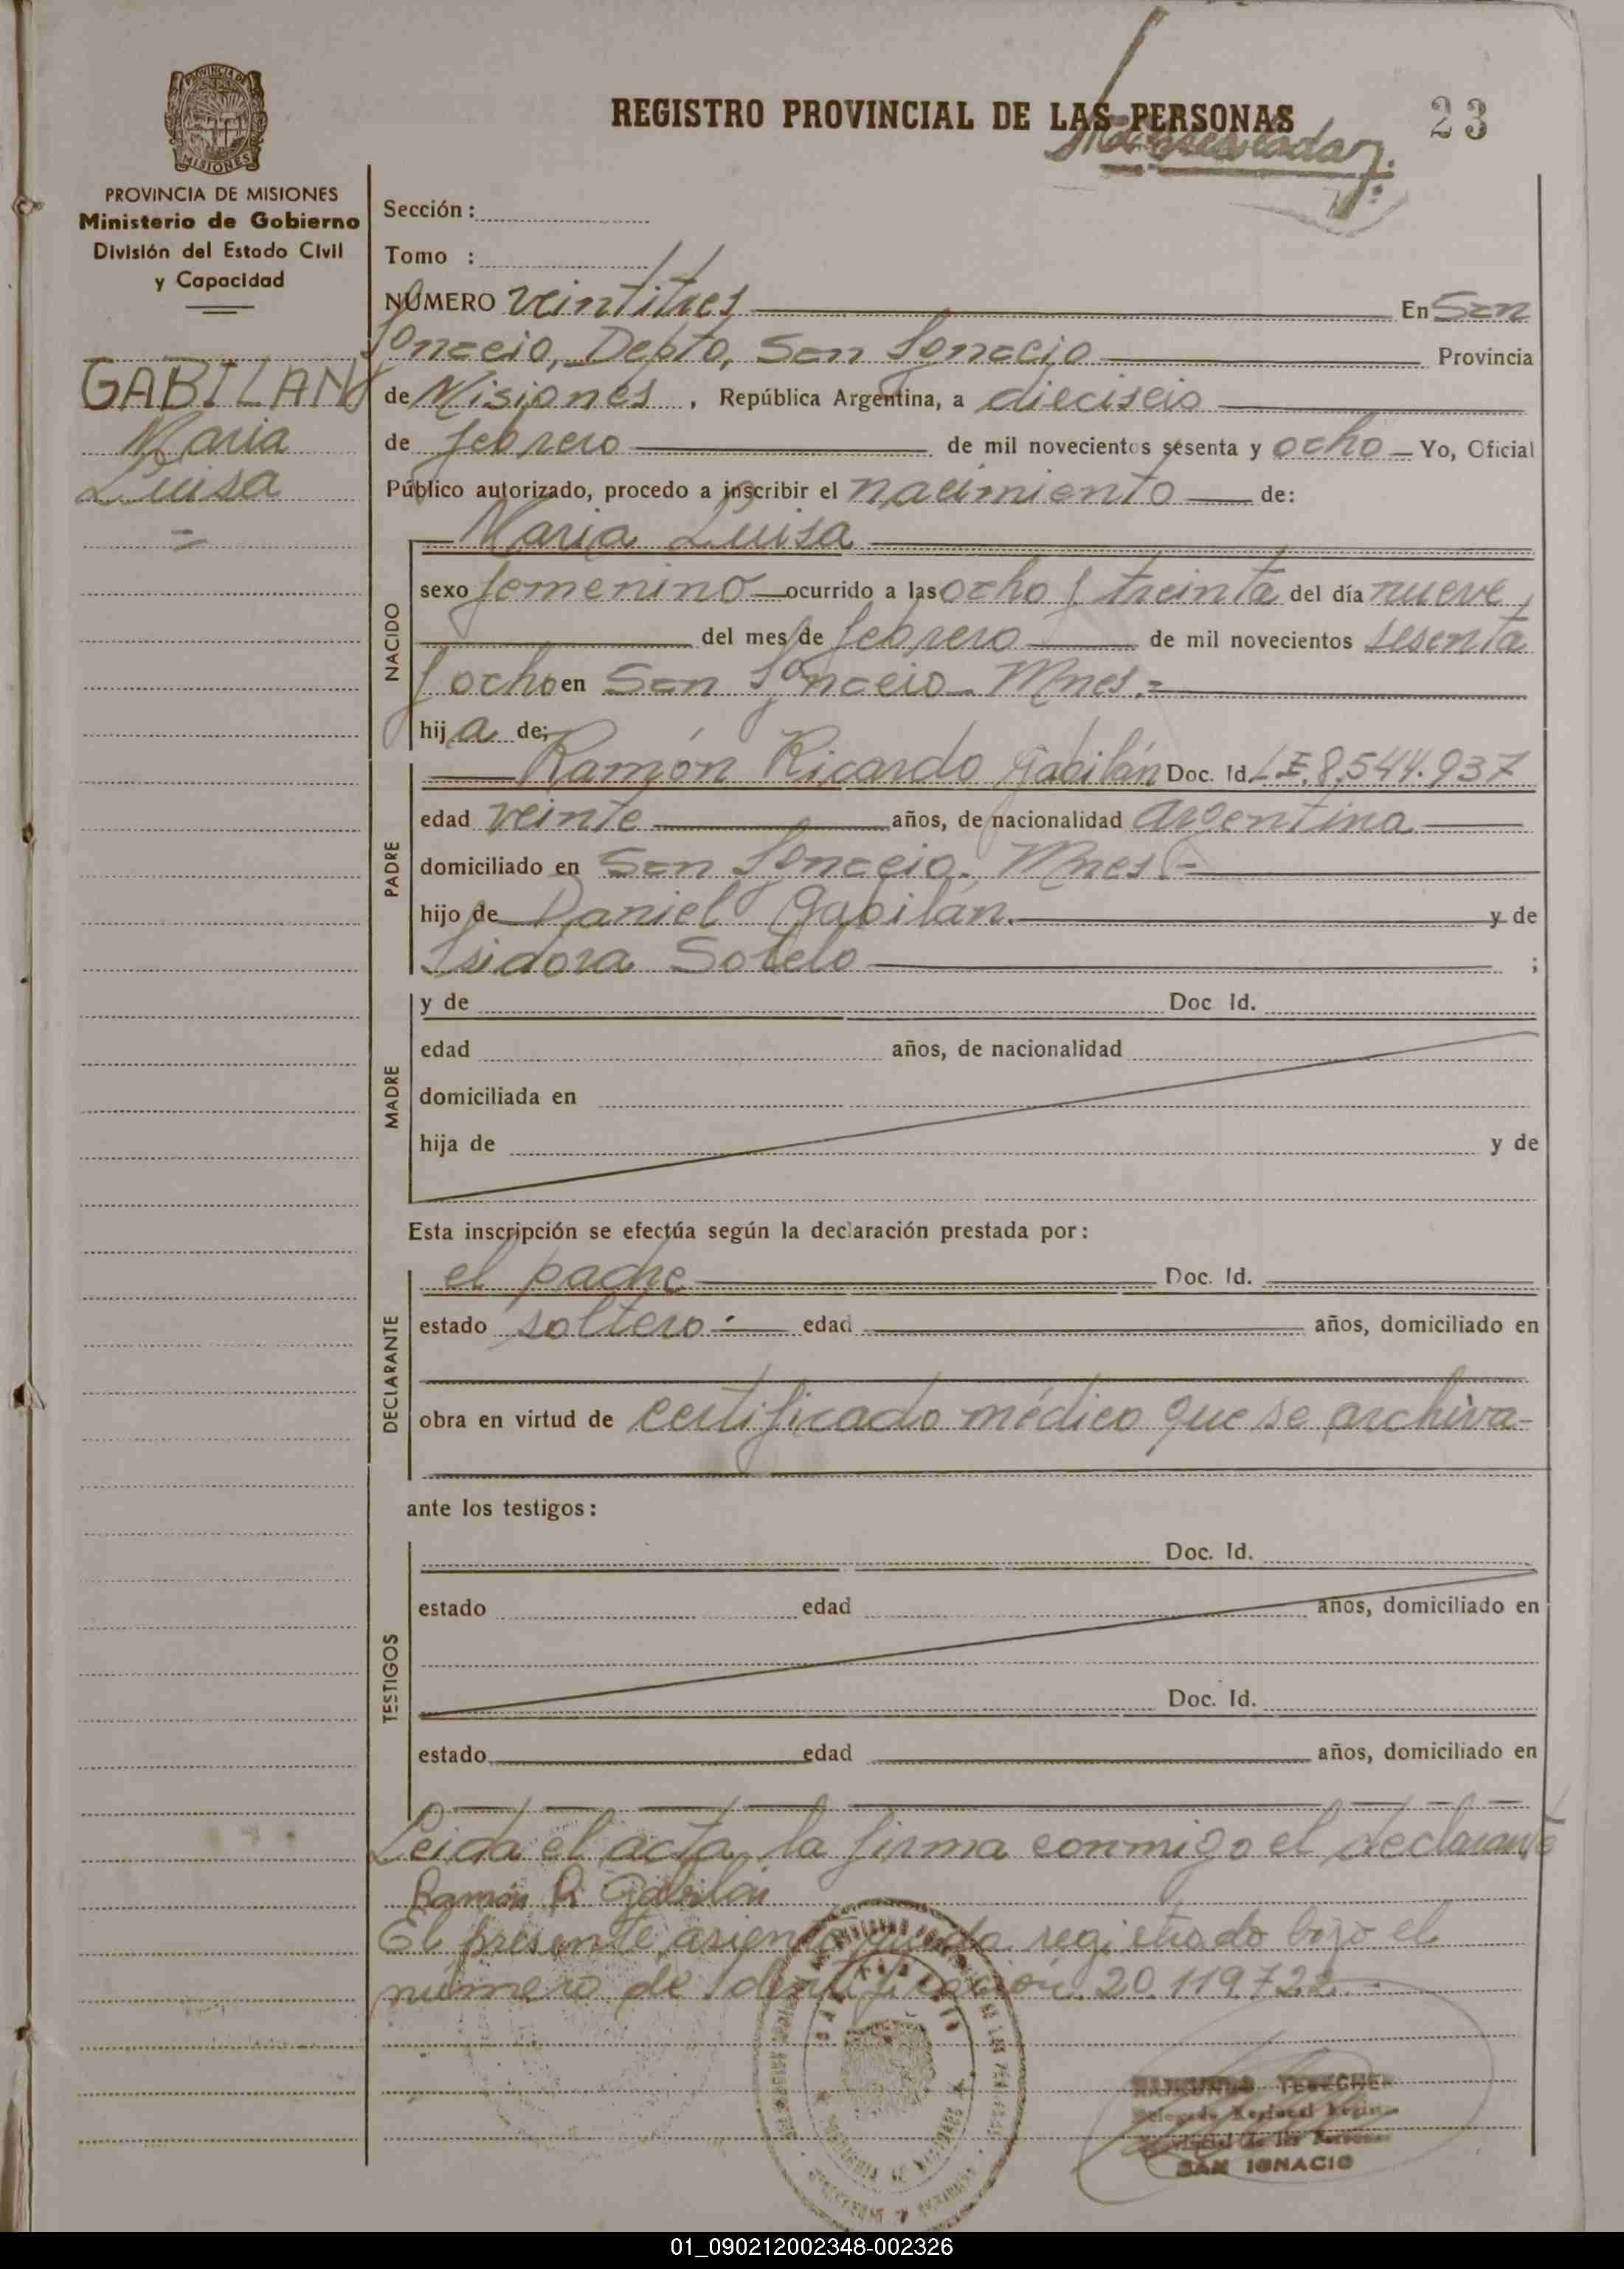 REGISTRO PROVINCIAL DE LAS PERSONAS
23
PROVINCIA DE MISIONES
Ministerio de Gobierno
División del Estado Civil
y Capacidad
GABILAN
Maria
Luisa
Sección:
Tomo :
NÚMERO veintitres En San
Ignacio, Depto, San Ignacio Provincia
de Misiones, República Argentina, a dieciseis
de febrero de mil novecientos sesenta y ocho Yo, Oficial
Público autorizado, procedo a inscribir el nacimiento de:
NACIDO
Maria Luisa
sexo femenino ocurrido a las ocho y treinta del día nueve
del mes de febrero de mil novecientos sesenta
y ocho en San Ignacio Mnes.=
hija de;
PADRE
Ramón Ricardo Gabilán Doc. Id. L.E. 8.544.937
edad veinte años, de nacionalidad argentina
domiciliado en San Ignacio. Mnes.-
hijo de Daniel Gabilán. y de
Isidora Sotelo ;
MADRE
y de Doc Id.
edad años, de nacionalidad
domiciliada en
hija de y de
Esta inscripción se efectúa según la declaración prestada por:
DECLARANTE
el padre Doc. Id.
estado soltero.- edad años, domiciliado en
obra en virtud de certificado médico que se archiva-
ante los testigos:
TESTIGOS
Doc. Id.
estado edad años, domiciliado en
Doc. Id.
estado edad años, domiciliado en
Leida el acta, la firma conmigo el declarante
Ramón R. Gabilan
El presente asiento queda registrado bajo el
número de Identificación 20.119.722
Delegado Regional Registro
Provincial de las Personas
SAN IGNACIO
01_090212002348-002326